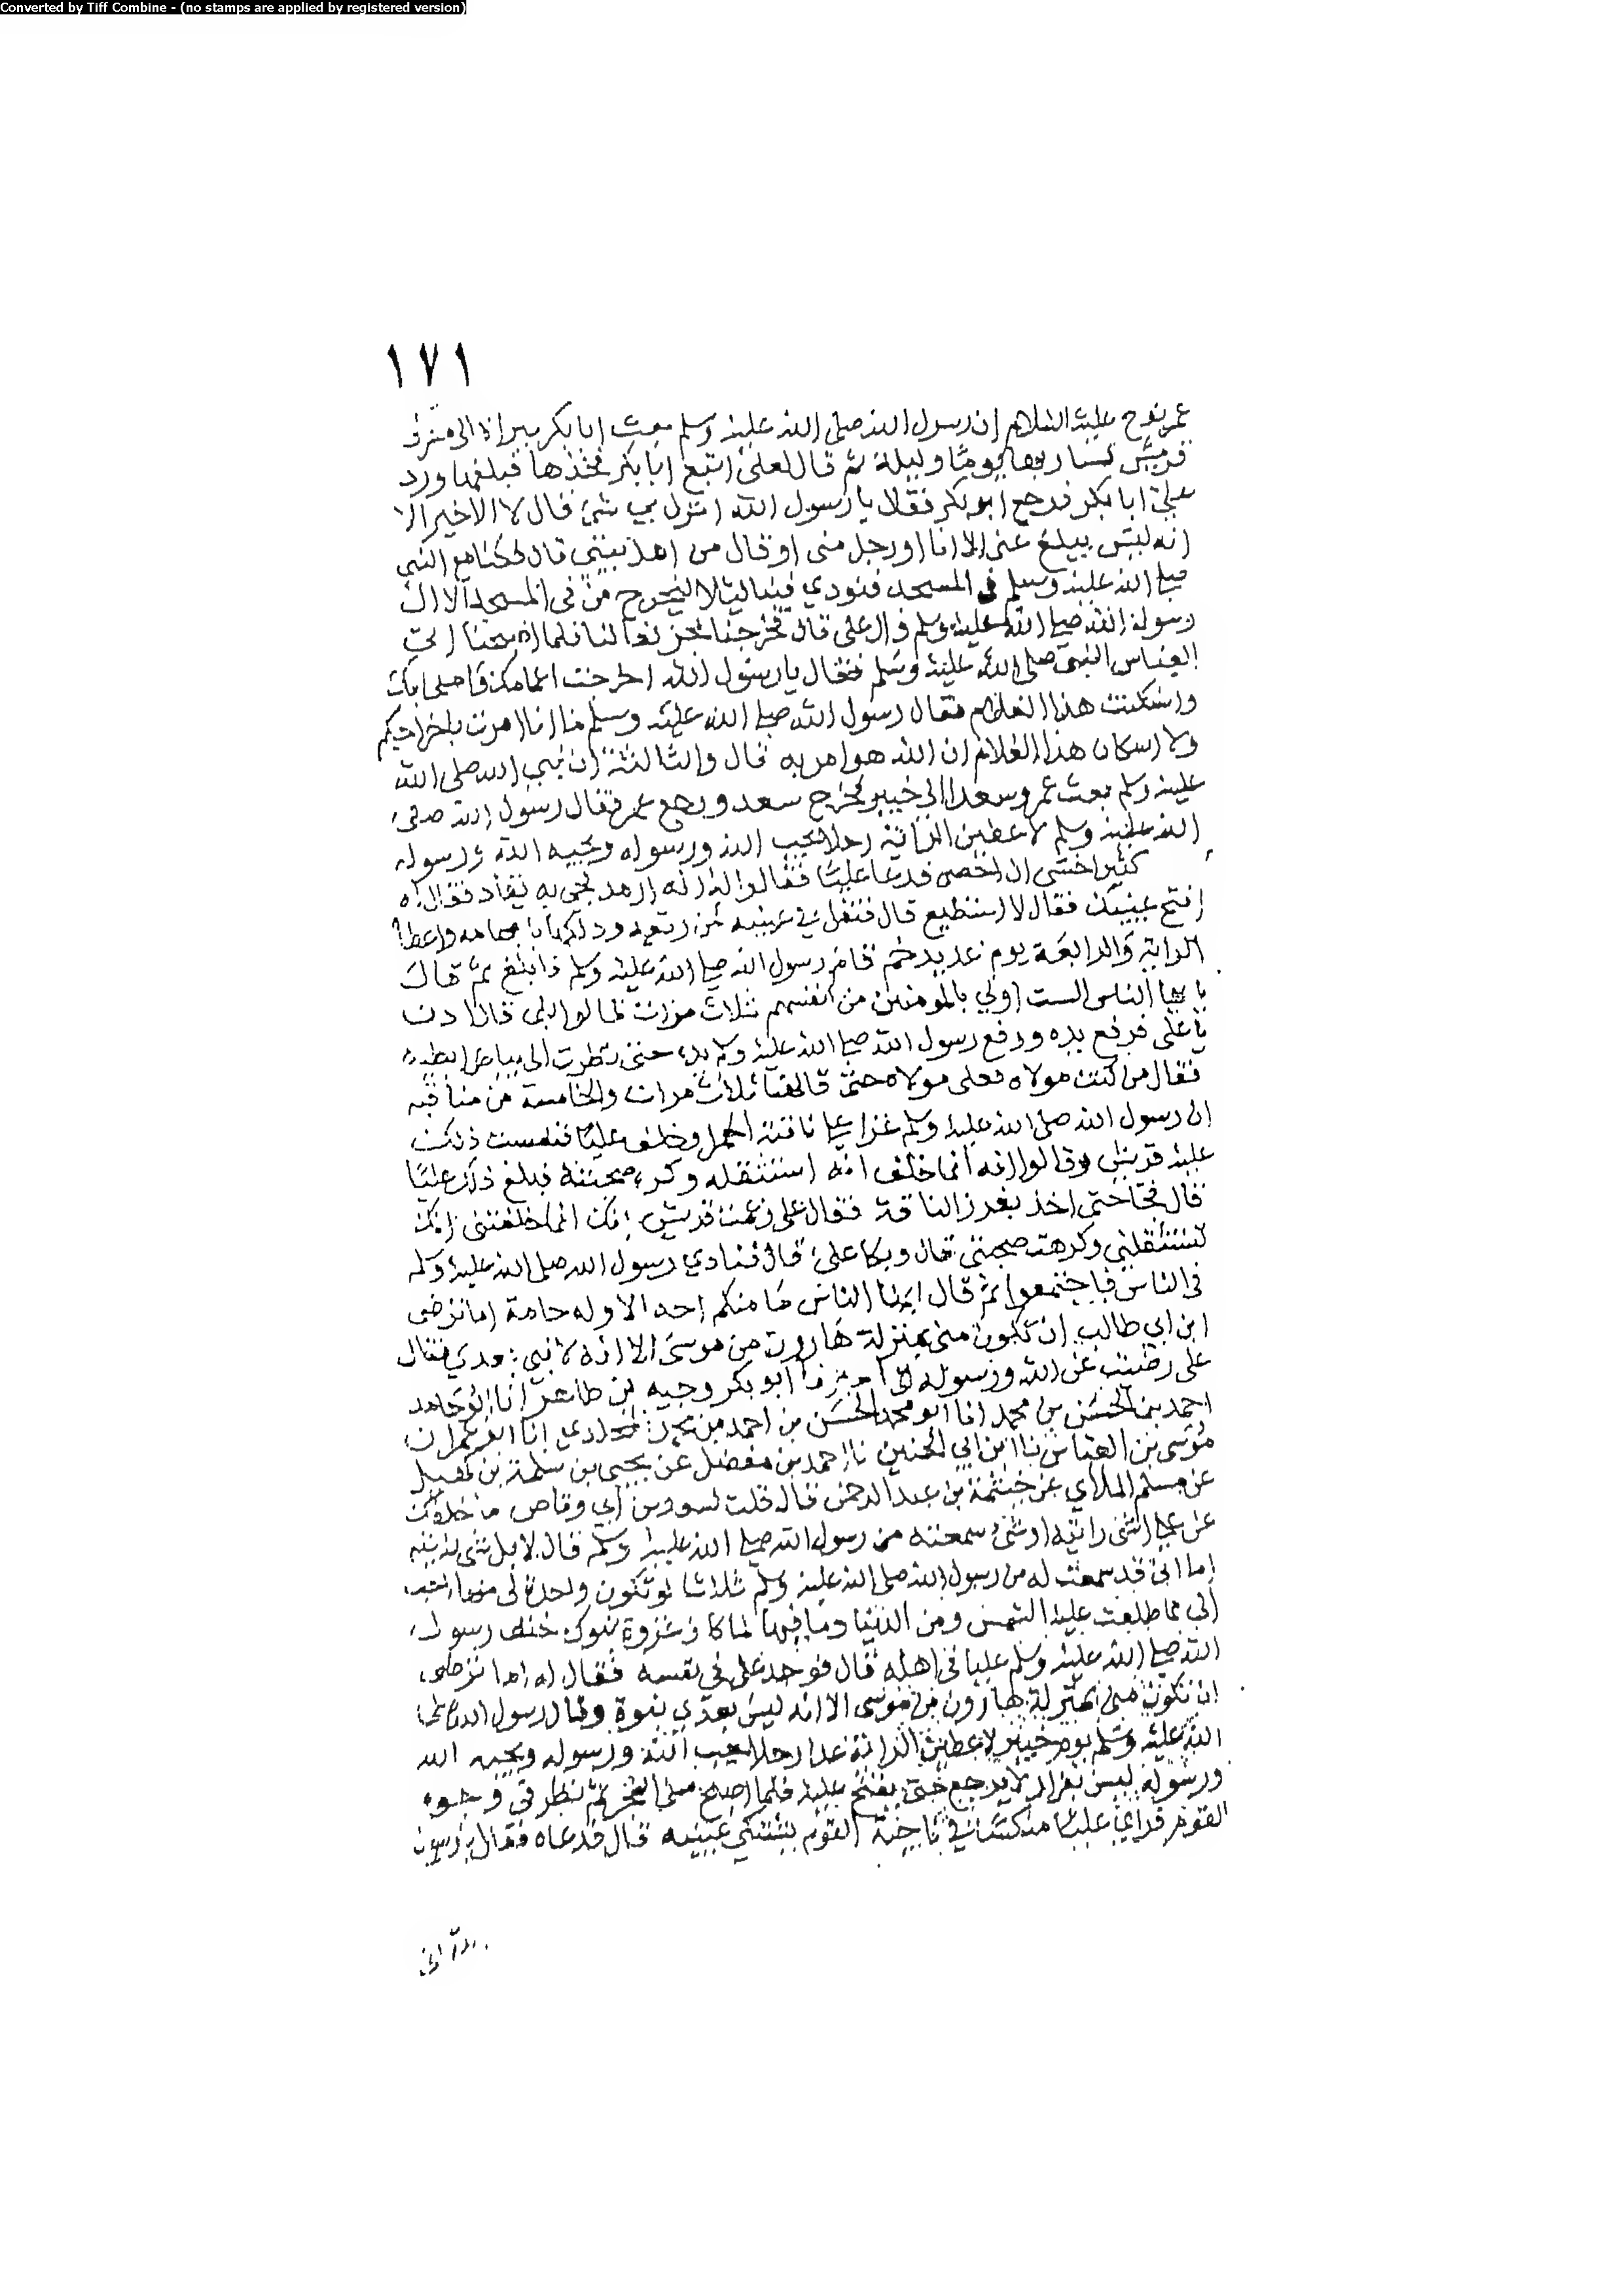 Converted by Tiff Combine - (no stamps are applied by registered version)
١٧١
عمر نوح عليه السلام ان رسول الله صلى الله عليه وسلم بعث ابا بكر ببراة الى مشركي
قريش فسار بها يوما وليلة ثم قال لعلى اتبع ابا بكر فخذها فبلغها ورد
على ابا بكر فرجع ابو بكر فقال يا رسول الله انزل في شئ قال لا الا خير الا
انه ليس يبلغ عني الا انا او رجل مني او قال من اهل بيتي قال فكنا مع النبي
صلى الله عليه وسلم في المسجد فنودي فينا ليلا ليخرج من في المسجد الا ال
رسول الله صلى الله عليه وسلم وال على قال فخرجنا نجر نعالنا فلما اصبحنا اتى
العباس النبي صلى الله عليه وسلم فقال يا رسول الله اخرجت اعمامك واصحابك
واسكنت هذا الغلام فقال رسول الله صلى الله عليه وسلم ما انا امرت باخراجكم
ولا اسكان هذا الغلام ان الله هو امر به قال والثالثة ان نبي الله صلى الله
عليه وسلم بعث عمر وسعدا الى خيبر فخرج سعد ورجع عمر فقال رسول الله صلى
الله عليه وسلم لاعطين الراية رجلا يحب الله ورسوله ويحبه الله ورسوله
كثير اخشى ان احصي فدعا عليا فقالوا انه ارمد فجئ به يقاد فقال له
افتح عينيك فقال لا استطيع قال فتفل في عينيه من ريقه ودلكها بابهامه واعطاه
الراية والرابعة يوم غدير خم قام رسول الله صلى الله عليه وسلم فابلغ ثم قال
يا ايها الناس الست اولي بالمومنين من انفسهم ثلاث مرات قالوا بلى قال ادن
يا على فرفع يده ورفع رسول الله صلى الله عليه وسلم يده حتى نظرت الى بياض ابطيه
فقال من كنت مولاه فعلى مولاه حتى قالها ثلاث مرات والخامسة من مناقبه
ان رسول الله صلى الله عليه وسلم غزا على ناقته الحمرا وخلف عليا فنفست ذلك
عليه قريش وقالوا انه انما خلفه انه استثقله وكره صحبته فبلغ ذلك عليا
قال فجا حتى اخذ بغرز الناقة فقال على زعمت قريش انك انما خلفتني انك
تستثقلني وكرهت صحبتي قال وبكا على قال فنادي رسول الله صلى الله عليه وسلم
في الناس فاجتمعوا ثم قال ايها الناس ما منكم احد الا وله حامة اما ترضى
ابن ابي طالب ان تكون مني بمنزلة هارون من موسى الا انه لا نبي بعدي فقال
على رضيت عن الله ورسوله ابو بكر وجيه بن طاهر انا ابو حامد
احمد بن الحسن بن محمد انا ابو محمد الحسن بن احمد بن محمد المخلدي انا ابو عمران
موسى بن العباس نا ابن ابي الحنين نا احمد بن مفضل عن يحيى بن سلمة بن كهيل
عن مسلم الملاي عن خيثمة بن عبد الرحمن قال قلت لسعد بن ابي وقاص ما خلفك
عن على اشئ رايته او شئ سمعته من رسول الله صلى الله عليه وسلم قال لا بل شئ رايته
اما اني قد سمعت له من رسول الله صلى الله عليه وسلم ثلاثا لو تكون واحدة لي منها احب
الي مما طلعت عليه الشمس ومن الدنيا وما فيها لما كان غزوة تبوك خلف رسول
الله صلى الله عليه وسلم عليا في اهله قال فوجد على في نفسه فقال له اما ترضى
ان تكون مني بمنزلة هارون من موسى الا انه ليس بعدي نبوة وقال رسول الله صلى
الله عليه وسلم يوم خيبر لاعطين الراية غدا رجلا يحب الله ورسوله ويحبه الله
ورسوله ليس بفرار لا يرجع حتى يفتح عليه فلما اصبح صلى الفجر ثم نظر في وجوه
القوم فراي عليا منكسا في ناحية القوم يشتكي عينيه قال فدعاه فقال يا رسول